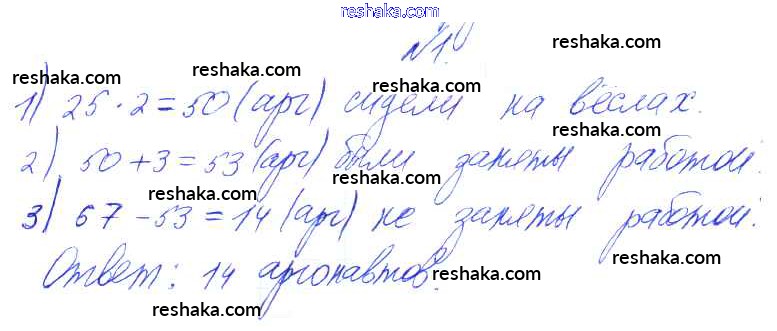 reshaka.com
№1.
reshaka.com
reshaka.com
reshaka.com
reshaka.com
1) 25 · 2 = 50 (арг) сидели на вёслах.
reshaka.com
2) 50 + 3 = 53 (арг) были заняты работой.
reshaka.com
reshaka.com
reshaka.com
3) 67 - 53 = 14 (арг) не заняты работой.
Ответ: 14 аргонавтов.
reshaka.com
reshaka.com
reshaka.com